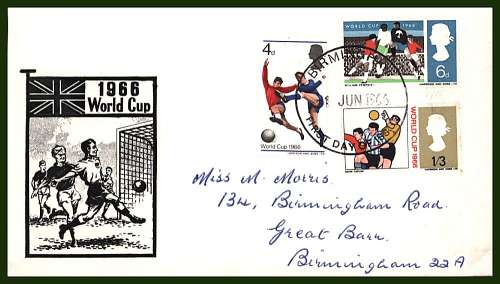 1966
World Cup
4d
World Cup 1966
WORLD CUP 1966
6d
BIRM
JUN 1966
FIRST DAY
WORLD CUP 1966
1/3
Miss M. Morris.
134, Birmingham Road.
Great Barr.
Birmingham 22A